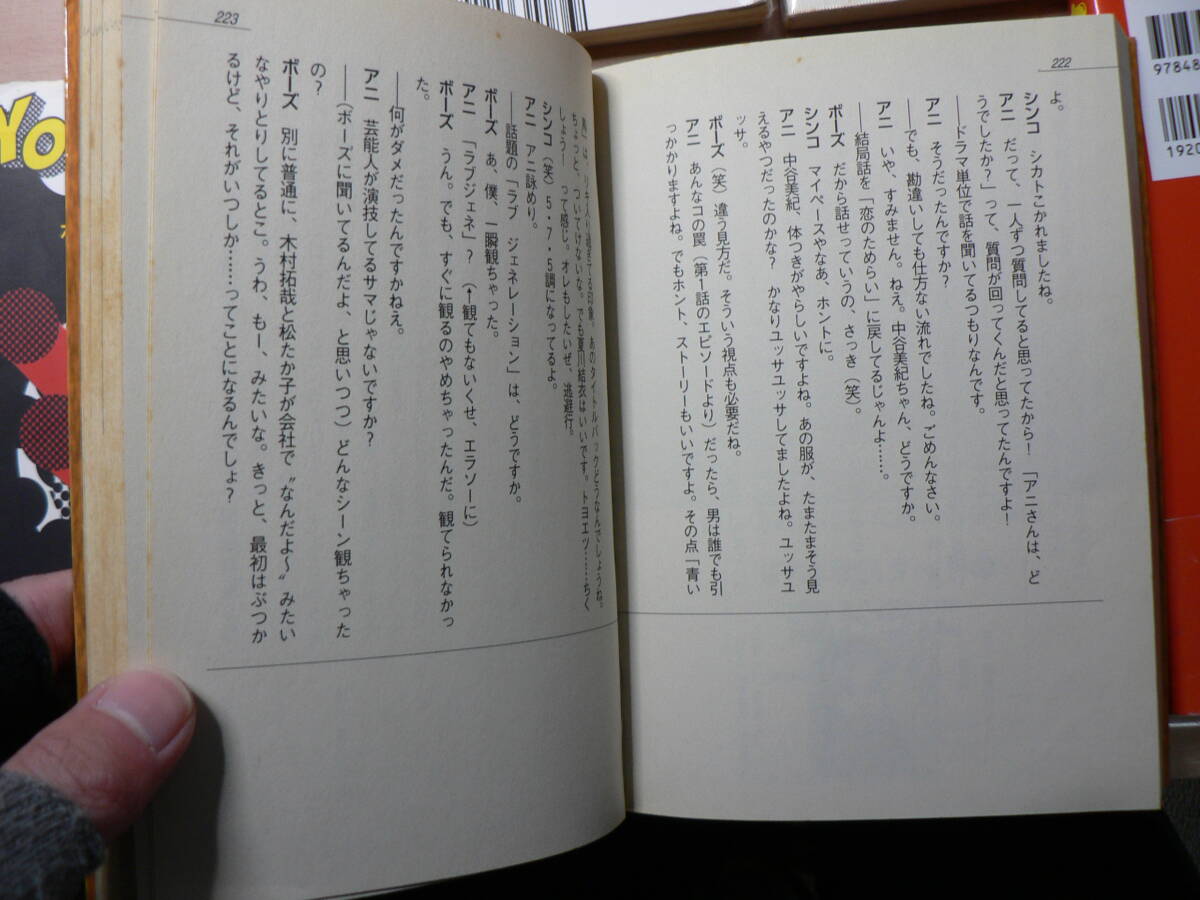 222
よ。
シンコ　シカトこかれましたね。
アニ　だって、一人ずつ質問してると思ってたから！　「アニさんは、ど
うでしたか？」って、質問が回ってくんだと思ってたんですよ！
――ドラマ単位で話を聞いてるつもりなんです。
アニ　そうだったんですか？
――でも、勘違いしても仕方ない流れでしたね。ごめんなさい。
アニ　いや、すみません。ねえ。中谷美紀ちゃん、どうですか。
――結局話を「恋のためらい」に戻してるじゃんよ……。
ボーズ　だから話せっていうの、さっき（笑）。
シンコ　マイペースやなあ、ホントに。
アニ　中谷美紀、体つきがやらしいですよね。あの服が、たまたまそう見
えるやつだったのかな？　かなりユッサユッサしてましたよね。ユッサユ
ッサ。
ボーズ（笑）違う見方だ。そういう視点も必要だね。
アニ　あんなコの罠（第1話のエピソードより）だったら、男は誰でも引
っかかりますよね。でもホント、ストーリーもいいですよ。その点「青い
223
ちょっと、ついてけないな。でも夏川結衣はいいです。トヨエツ……ちく
しょう！　って感じ。オレもしたいぜ、逃避行。
シンコ（笑）5・7・5調になってるよ。
アニ　アニ詠めり。
――話題の「ラブ　ジェネレーション」は、どうですか。
ボーズ　あ、僕、一瞬観ちゃった。
アニ　「ラブジェネ」？（↑観てもないくせ、エラソーに）
ボーズ　うん。でも、すぐに観るのやめちゃったんだ。観てられなかっ
た。
――何がダメだったんですかねえ。
アニ　芸能人が演技してるサマじゃないですか？
――（ボーズに聞いてるんだよ、と思いつつ）どんなシーン観ちゃった
の？
ボーズ　別に普通に、木村拓哉と松たか子が会社で〝なんだよ〜〟みたい
なやりとりしてるとこ。うわ、もー、みたいな。きっと、最初はぶつか
るけど、それがいつしか……ってことになるんでしょ？
YO
97848
1920